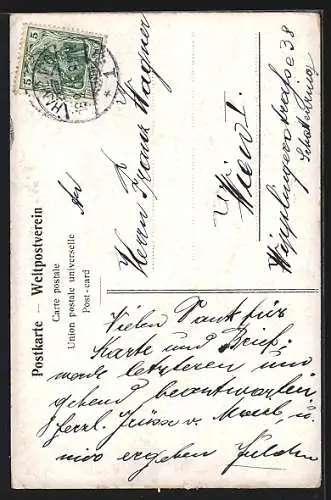 Postkarte — Weltpostverein
Carte postale
Union postale universelle
Post-card
5 5
1
An
Herrn Franz Wagner
Wien I.
Wipplingerstraße 38
Schottenring
Vielen Dank für
Karte und Brief,
werde letzteren um
gehend beantworten
Herzl. Grüsse v. u.
ergeben